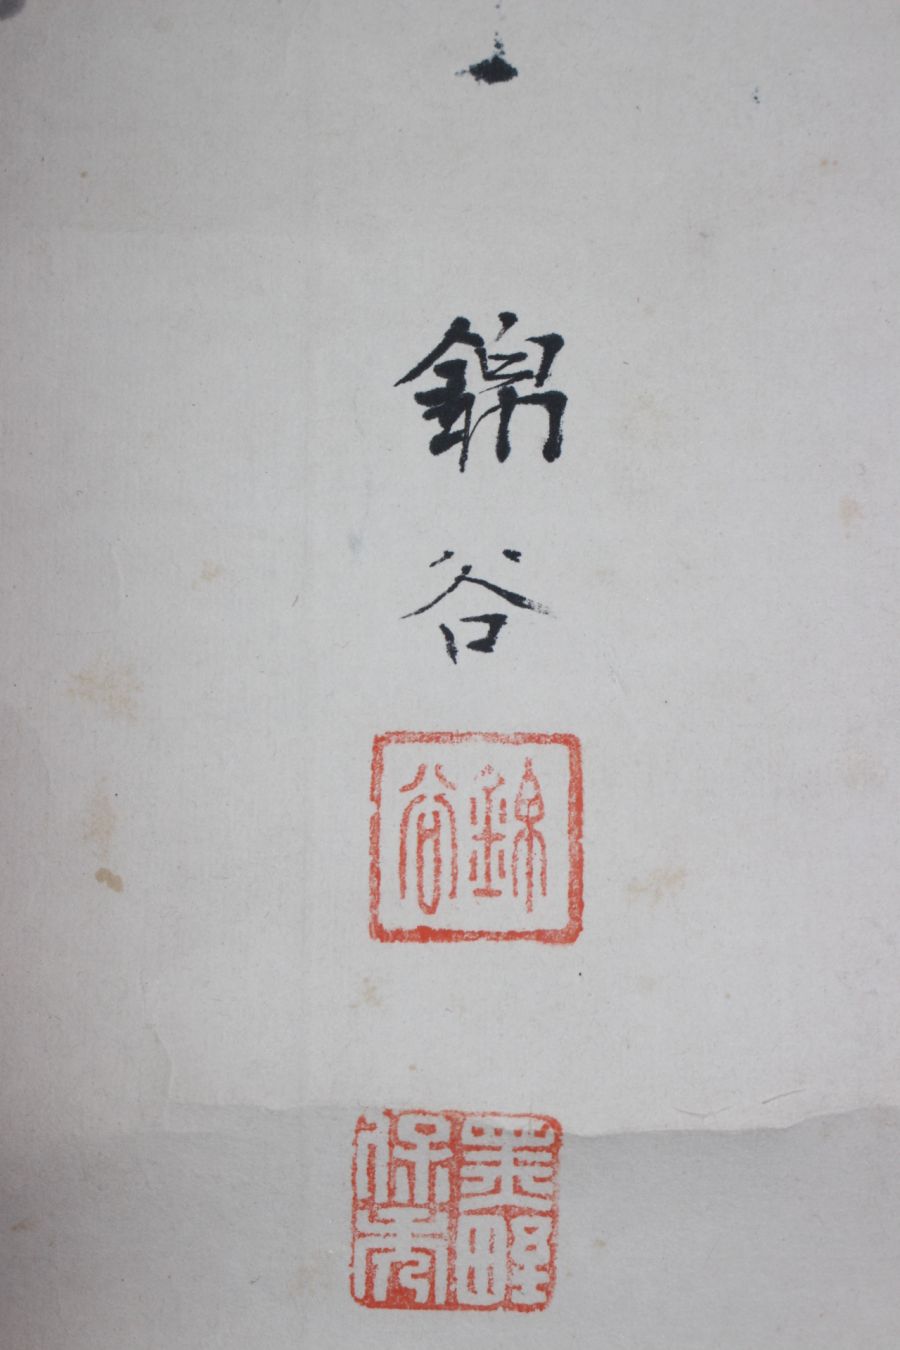 錦
谷
錦
谷
保